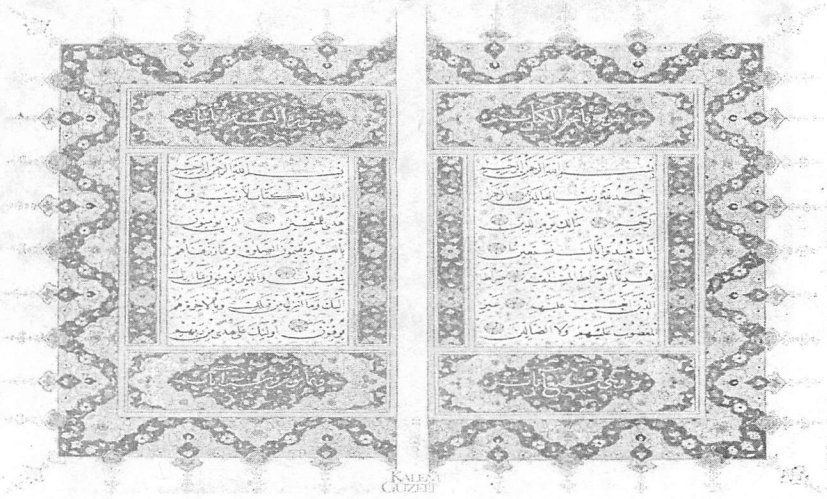 سورة فاتحة الكتاب
بسم الله الرحمن الرحيم
الحمد لله رب العالمين الرحمن
الرحيم مالك يوم الدين
اياك نعبد واياك نستعين
اهدنا الصراط المستقيم صراط
الذين انعمت عليهم غير
المغضوب عليهم ولا الضالين
سورة البقرة
بسم الله الرحمن الرحيم
الم ذلك الكتاب لا ريب فيه
هدى للمتقين الذين يؤمنون
بالغيب ويقيمون الصلوة ومما رزقناهم
ينفقون والذين يؤمنون بما انزل
اليك وما انزل من قبلك وبالاخرة هم
يوقنون اولئك على هدى من ربهم
KALEM
GÜZELİ